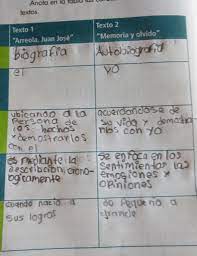 Anota en la tabla las
textos.
Texto 1
"Arreola, Juan José"
Texto 2
"Memoria y olvido"
biografia
Autobiografia
el
yo
ubicando a la
persona de
los hechos
y demostrarlos
con el
acuerdandose de
su vida y demostra
rlos con yo
es mediante la
descripción, crono-
logicamente
se enfoca en los
sentimientos las
emociones y
opiniones
cuando nacio a
sus logros
de pequeño a
grande